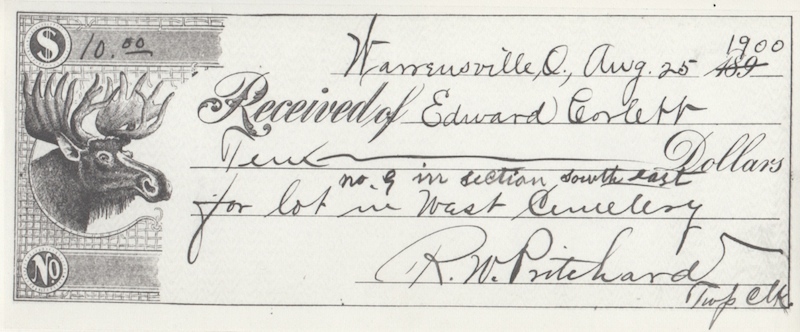 $ 10.00
Warrensville, O., Aug. 25 1900
189
Received of Edward Corlett
Ten Dollars
no. 9 in section south east
for lot in West Cemetery
R. W. Pritchard
Twp. Clk.
No